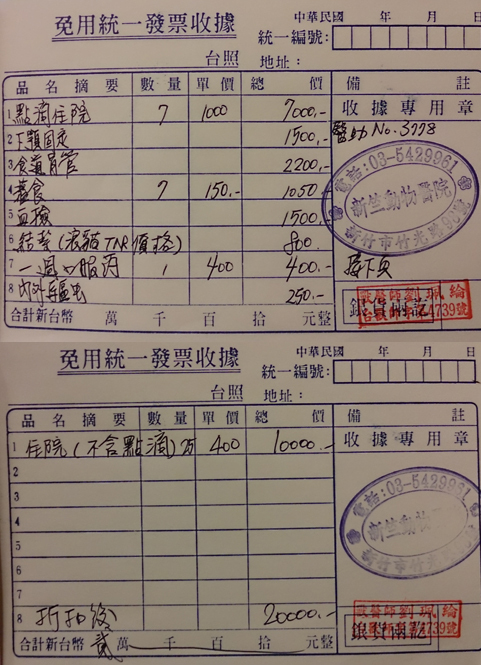 免用統一發票收據
中華民國 年 月 日
統一編號:
台照 地址:
品名摘要 數量 單價 總價 備註
1 點滴住院 7 1000 7000.-
收據專用章
2 下顎固定 1500.-
醫助 No.3778
3 食道胃管 2200.-
電話:03-5429961
新竺動物醫院
新竹市竹光路98號
4 養食 7 150.- 1050.-
5 血檢 1500.-
6 結紮(浪貓TNR價格) 800.-
7 一週口服药 1 400 400.-
接下頁
8 內外驅虫 250.-
獸醫師劉珮綸
4739號
銀貨兩訖
合計新台幣 萬 千 百 拾 元整
免用統一發票收據
中華民國 年 月 日
統一編號:
台照 地址:
品名摘要 數量 單價 總價 備註
1 住院(不含點滴) 25 400 10000.-
收據專用章
2
3
電話:03-5429961
新竺動物醫
新竹市竹光路
4
5
6
7
8 折扣後 20000.-
獸醫師劉珮綸
4739號
銀貨兩訖
合計新台幣 貳萬 千 百 拾 元整